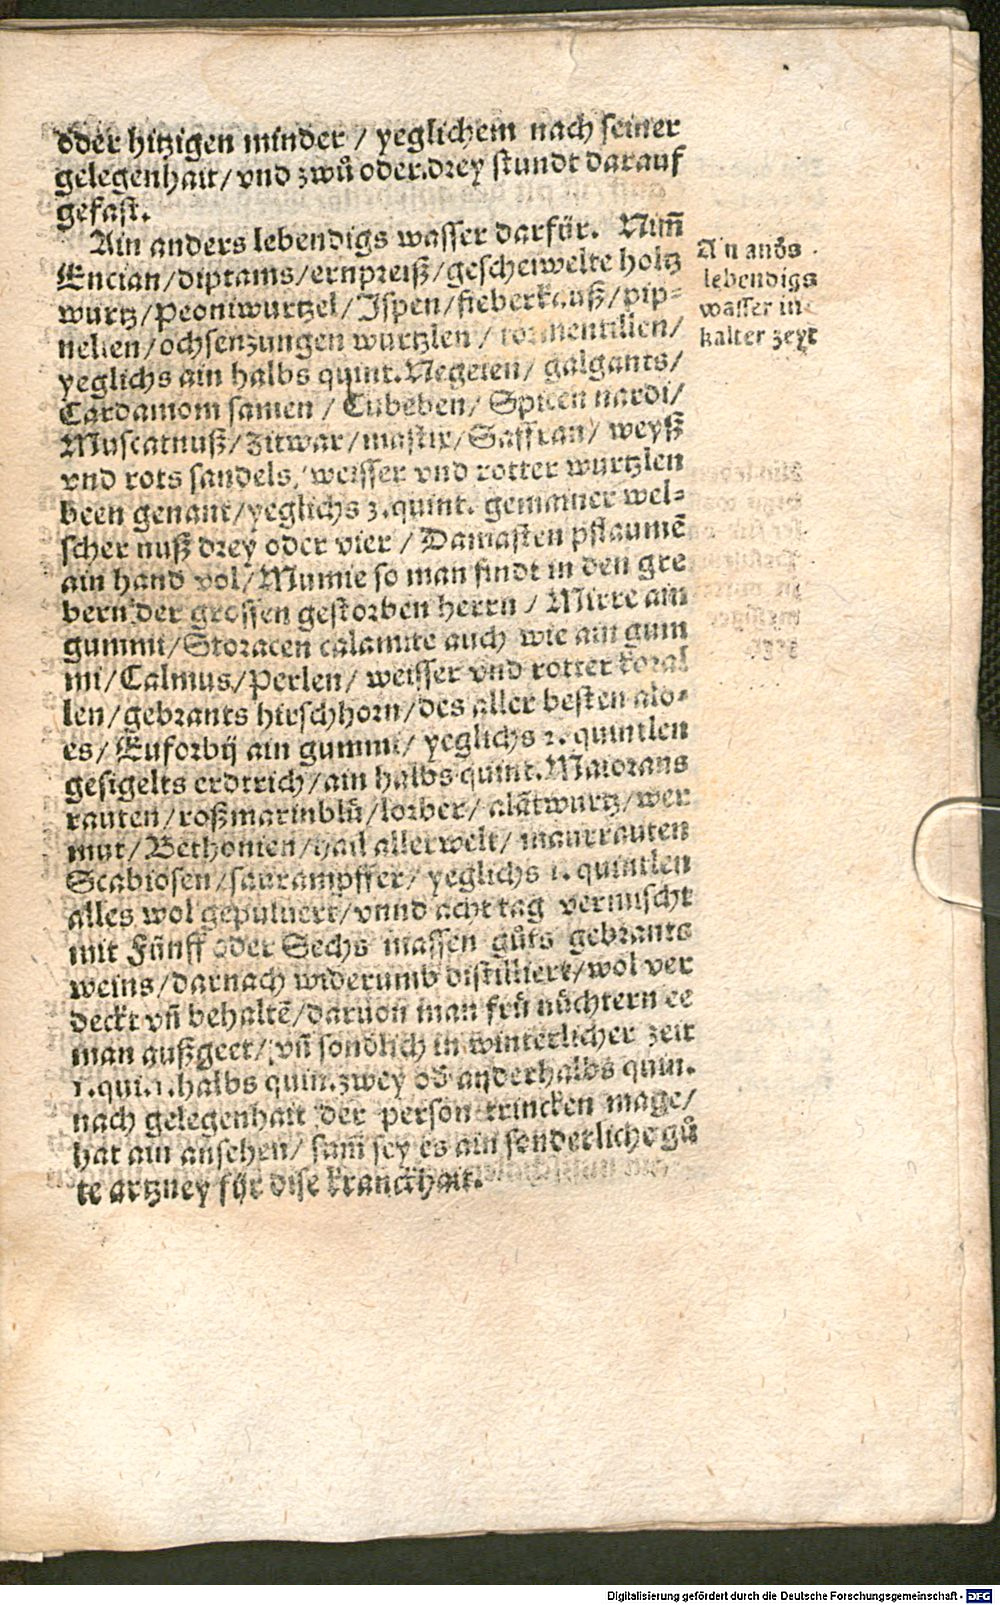 oder hitzigen minder / yeglichem nach seiner
gelegenhait / vnd zwů oder drey stundt darauf
gefast.
Ain anders lebendigs wasser darfür. Nim̄
Encian / diptams / ernpreiß / gescheiwelte holtz
wurtz / Peoniwurtzel / Ispen / fieberkrauß / pip⸗
nellen / ochsenzungen wurtzlen / tormentillen /
yeglichs ain halbs quint. Negelen / galgants /
Cardamom samen / Cubeben / Spicen nardi /
Muscatnuß / zitwar / mastix / Saffran / weyß
vnd rots sandels / weisser vnd rotter wurtzlen
been genant / yeglichs 3. quint. gemainer wel⸗
scher nuß drey oder vier / Damasten pflaumē
ain hand vol / Mumie so man findt in den gre
bern der grossen gestorben herrn / Mirre ain
gummi / Storacen calamite auch wie ain gum
mi / Calmus / Perlen / weisser vnd rotter koral
len / gebrants hirschhorn / des aller besten alo⸗
es / Euforbij ain gummi / yeglichs 2. quintlen
gesigelts erdtrich / ain halbs quint. Maiorans
rauten / roßmarinblů / lorber / alātwurtz / wer
mut / Bethonien / hail aller welt / maurrauten
Scabiosen / saurampffer / yeglichs 1. quintlen
alles wol gepuluert / vnnd acht tag vermischt
mit Fünff oder Sechs massen gůts gebrants
weins / darnach widerumb distilliert / wol ver
deckt vn̄ behaltē / daruon man frů nůchtern ee
man außgeet / vn̄ sondlich in winterlicher zeit
1. qui. 1. halbs quin. zwey od̄ anderhalbs quin.
nach gelegenhait der person trincken mage /
hat ain ansehen / sam̄ sey es ain sonderliche gů
te artzney für dise kranckhait.
Ain and̄s
lebendigs
wasser in
kalter zeyt
Digitalisierung gefördert durch die Deutsche Forschungsgemeinschaft - DFG